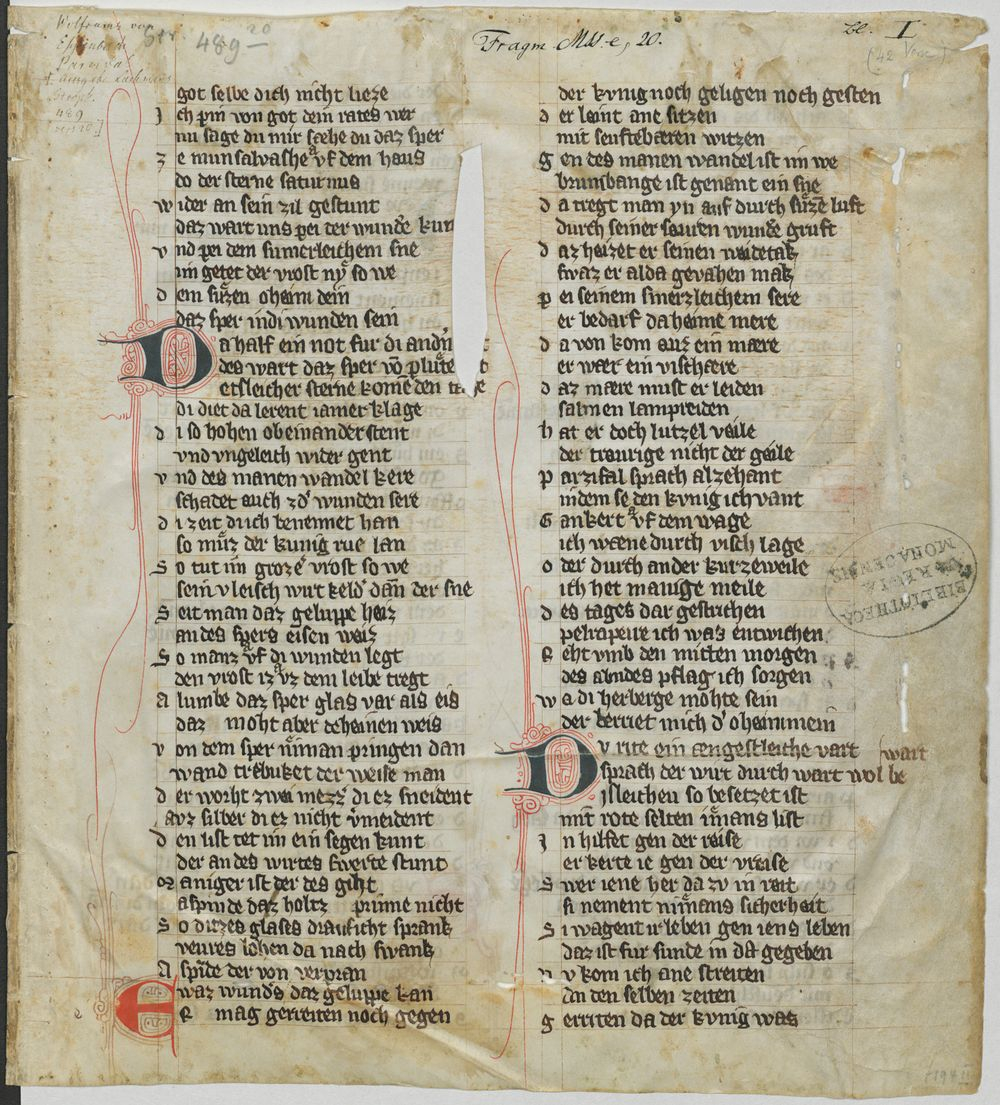 Wolfram von
Eschenbach
Parcival
489
Str. 489 20
Fragm MSS. e, 20.
I
(42 Verse)
got selbe dich nicht lieze
J ch pin von got dem rates wer
nu sage du mir sæhe du daz sper
z e munsalvashe vͣf dem haus
do der sterne saturnus
w ider an sein zil gestunt
daz wart uns pei der wunde kun
v nd pei dem sumerleichem sne
im getet der vrost ny so we
d em suͤzen oheim dein
daz sper indi wunden sein
D a half ein not fur di andn
des wart daz sper vō plute t
etsleicher sterne kome den ta e
di diet da lerent iamer klage
d i so hohen obeinander stent
vnd vngeleich wider gent
v nd des manen wandel kere
schadet auch zd' wunden sere
d i zeit di ich benennet han
so muͤz der kunig rue lan
S o tut im groze vrost so we
sein vleisch wirt keld' dan der sne
S eit man daz geluppe heiz
an des spers eisen weiz
S o manz vͣf di wunden legt
den vrost iz vͣz dem leibe tregt
A lumbe daz sper glas var als eis
daz moht aber deheinen weis
v on dem sper niman pringen dan
wand trebuket der weise man
d er worht zwai mezz' di ez sneident
auz silber di ez nicht v'meident
d en list tet im ein segen kunt
der an des wirtes swerte stunt
M aniger ist der des giht
aspinde daz holtz prinne nicht
S o ditzes glases drauf icht sprank
veures lohen da nach swank
A spīde der von verpran
waz wund's daz geluppe kan
E R mag gerreiten noch gegen
der kvnig noch geligen noch gesten
d er leint ane sitzen
mit senftebæren witzen
g en des manen wandel ist im we
brunbange ist genant ein sne
d a tregt man yn auf durch suͤze luft
durch seiner souren wunde gruft
d az heizet er seinen weidetak
swaz er alda gevahen mak
p ei seinem smerzleichem sere
er bedarf da heime mere
d a von kom auz ein mære
er wær ein vischære
d az mære must er leiden
salmen lampreiden
h at er doch lutzel veile
der traurige nicht der geile
p arzifal sprach alzehant
in dem se den kvnig ich vant
G ankert vͣf dem wage
ich wæne durch visch lage
o der durch ander kurzeweile
ich het manige meile
d es tages dar gestrichen
pelrapeire ich was entwichen
R eht vmb den mitten morgen
des abndes pflag ich sorgen
w a di herberge mohte sein
der berriet mich d' oheim mein
D v rite ein ængestleiche vart wart
sprach der wirt durch wart wol be
Jsleichen so besetzet ist
mit rote selten imans list
J n hilfet gen der raise
er kerte ie gen der vreise
S wer iene her da zv in rait
si nement nimans sicherhait
S i wagent ir leben gen iens leben
daz ist fur sunde in da gegeben
n v kom ich ane streiten
an den selben zeiten
g erriten da der kvnig was
BIBLIOTHECA
REGIA
MONACENSIS